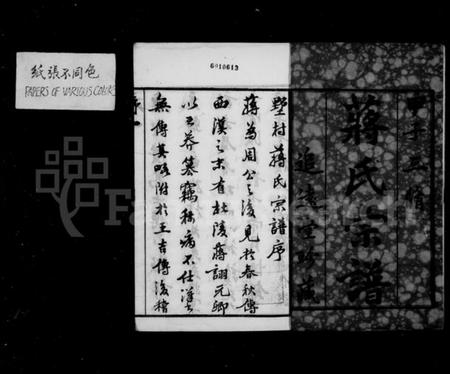 紙張不同色
PAPERS OF VARIOUS COLORS
6010613
蔣氏宗譜
追遠堂
野村蔣氏宗譜序
蔣爲周公之後見於春秋傳
西漢之末有杜陵蔣詡元卿
以王莽篡竊稱病不仕漢書
無傳其略附於王吉傳後稽